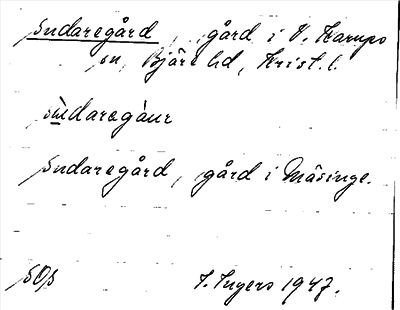 Sudaregård, gård i V. Karups
sn, Bjäre hd, Krist. l.
sudaregàur
Sudaregård, gård i Måsinge.
SOS I. Ingers 1947.